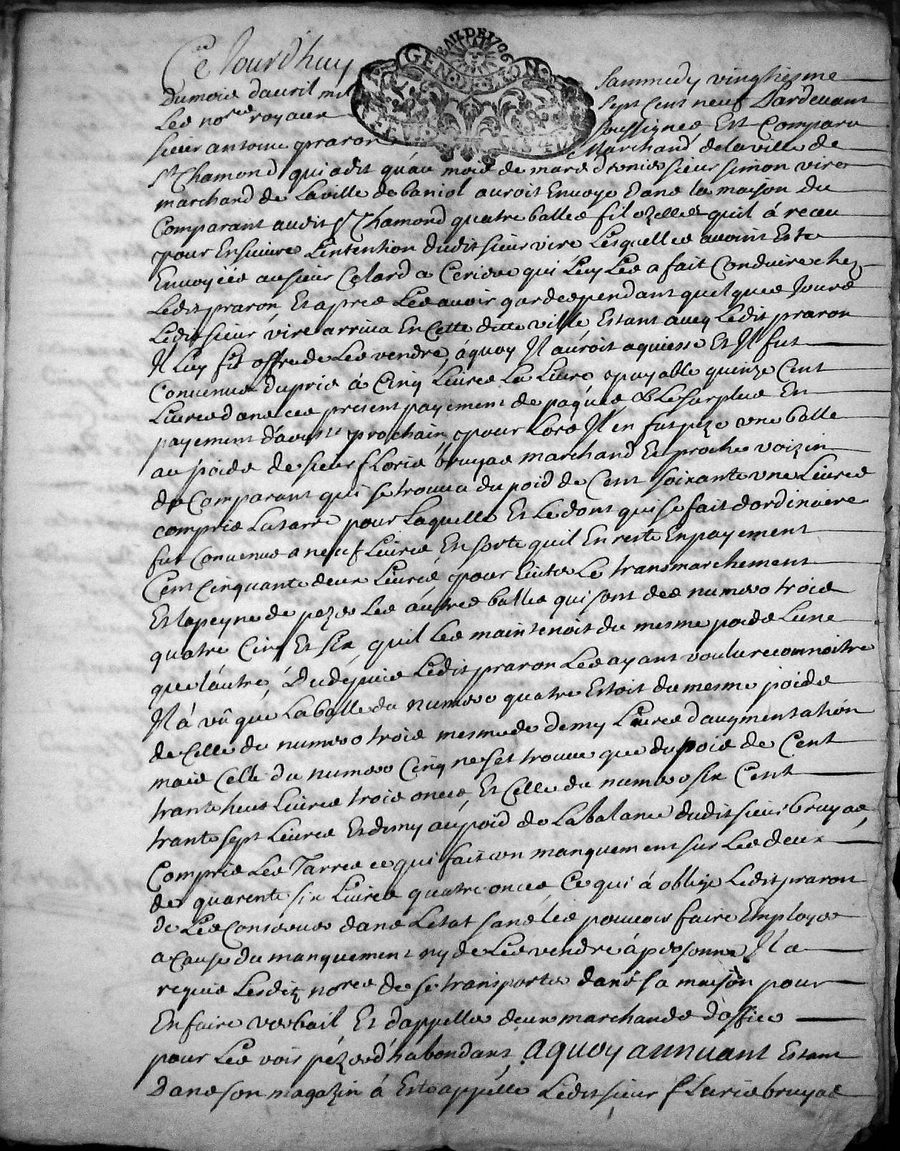 Ce Jourdhuy Sammedy vingtiesme
Du mois davril mil Sept Cent neuf Pardevant
Les no.res royaux Soussignes Est Comparu
sieur antoine praron Marchand de la ville de
St Chamond qui a dit quau mois de mars dernier sieur simon vire
marchand de La ville de baniol auroit Envoye dans la maison du
Comparant audit St Chamond quatre balles fil ozelles quil á receu
pour Ensuivre Lintention dudit sieur vire Lesquelles avoint Esté
Envoyées au sieur Celard a Cerider qui Luy Les a fait Conduire chez
Ledit praron, Et aprés Les avoir gardees pendant quelques Jours
Ledit sieur vire arriva En Cette ditte ville Estant avecq Ledit praron
Il Luy fit offre de Les vendre, áquoy Il auroit aquiesse Et Il fut
Convenus du pris á Cinq Livres La Livre payable quinze Cent
Livres dans ces present payement de paques & Le surplus En
payement d'aoust prochain, pour Lors Il en fut pezé vne balle
au poids de sieur floris bruyas marchand Et proche voizin
du Comparant qui se trouva du poid de Cent soixante vne Livres
compris La tarre pour Laquelle Et Le dont qui se fait d'ordinaire
fut Convenus a neuf Livres En sorte quil En reste En payement
Cent Cinquante deux Livres pour Eviter Le transmarchement
Et la peyne de pezer Les autres balles qui sont des numero trois
quatre Cinq Et six quil Les maintenoit du mesme poids Lune
que lautre, Dudépuis Ledit praron Les ayant voulu reconnoitre
Il á vû que La balle du numero quatre Estoit du mesme poids
de Celle du numero trois mesme de demy Livres d'augmentation
mais Celle du numero Cinq ne set trouvé que du poid de Cent
trante huit Livres trois onces Et Celle du numero six Cent
trante sept Livres Et demy au poid de La balance dudit sieur bruyas,
Compris Les Tarres ce qui fait un manquement sur Les deux
de quarente six Livres quatre onces Ce qui á oblige Ledit praron
de Les Conserver dans Letat sans les pouvoir faire Employer
a cause du manquement ny de Les vendre á personne Il a
requis Lesditz nores de se transporter dans sa maison pour
En faire verbail Et d'appeller deux marchands d'office
pour Les voir pézer d'habondant, aquoy annuant Estant
dans son magazin á Esté appellé Ledit sieur fLuris bruyas